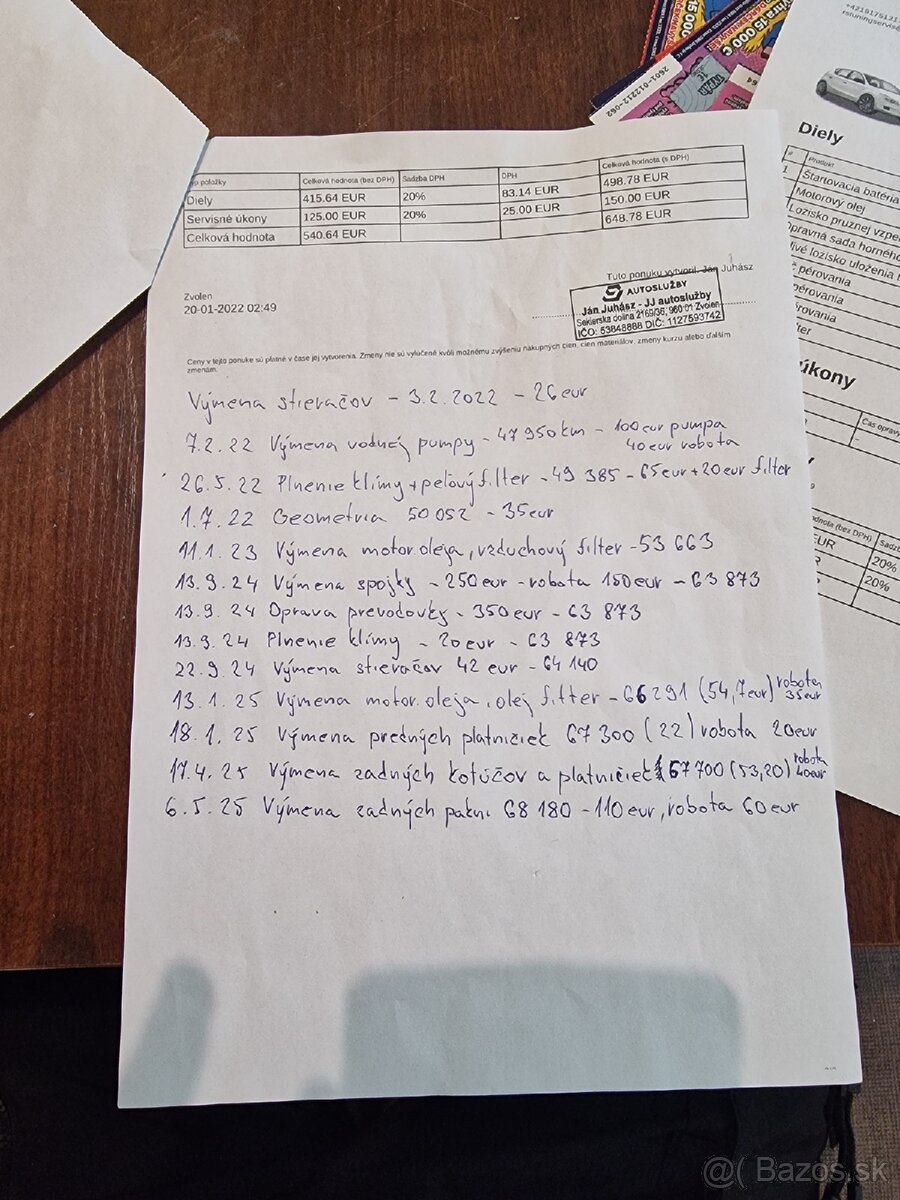 +42191751217
rstuningservis@
Vitra 15 000 €
2601-012212-062
64
Diely
#
Produkt
1
Štartovacia batéria
Motorový olej
Ložisko pruznej vzpe
Opravná sada horného
ložisko uloženia
pérovania
pérovania
úkony
Čas opravy
dnota (bez DPH)
Sadzb
EUR
20%
20%
yp položky Celková hodnota (bez DPH) Sadzba DPH DPH Celková hodnota (s DPH)
Diely 415.64 EUR 20% 83.14 EUR 498.78 EUR
Servisné úkony 125.00 EUR 20% 25.00 EUR 150.00 EUR
Celková hodnota 540.64 EUR 648.78 EUR
Tuto ponuku vytvoril. Ján Juhász
AUTOSLUŽBY
Ján Juhász - JJ autoslužby
Sekierska dolina 2169/36, 960 01 Zvolen
IČO: 53848888 DIČ: 1127593742
Zvolen
20-01-2022 02:49
Ceny v tejto ponuke sú platné v čase jej vytvorenia. Zmeny nie sú vylúčené kvôli možnému zvýšeniu nákupných cien, cien materiálov, zmeny kurzu alebo ďalším
zmenám.
Výmena stieračov - 3.2.2022 - 26eur
7.2.22 Výmena vodnej pumpy - 47 950km - 100eur pumpa
40eur robota
26.5.22 Plnenie klímy + peľový filter - 49 385 - 65eur + 20eur filter
1.7.22 Geometria 50 052 - 35eur
11.1.23 Výmena motor.oleja, vzduchový filter - 53 663
13.9.24 Výmena spojky - 250eur - robota 150eur - 63 873
13.9.24 Oprava prevodovky - 350eur - 63 873
13.9.24 Plnenie klímy - 20eur - 63 873
22.9.24 Výmena stieračov 42 eur - 64 140
13.1.25 Výmena motor.oleja, olej filter - 66 291 (54,7eur) robota 35eur
18.1.25 Výmena predných platničiek 67 300 (22) robota 20eur
17.4.25 Výmena zadných kotúčov a platničiek 67 700 (53,20) robota 40eur
6.5.25 Výmena zadných pakní 68 180 - 110eur, robota 60eur
@( Bazos.sk